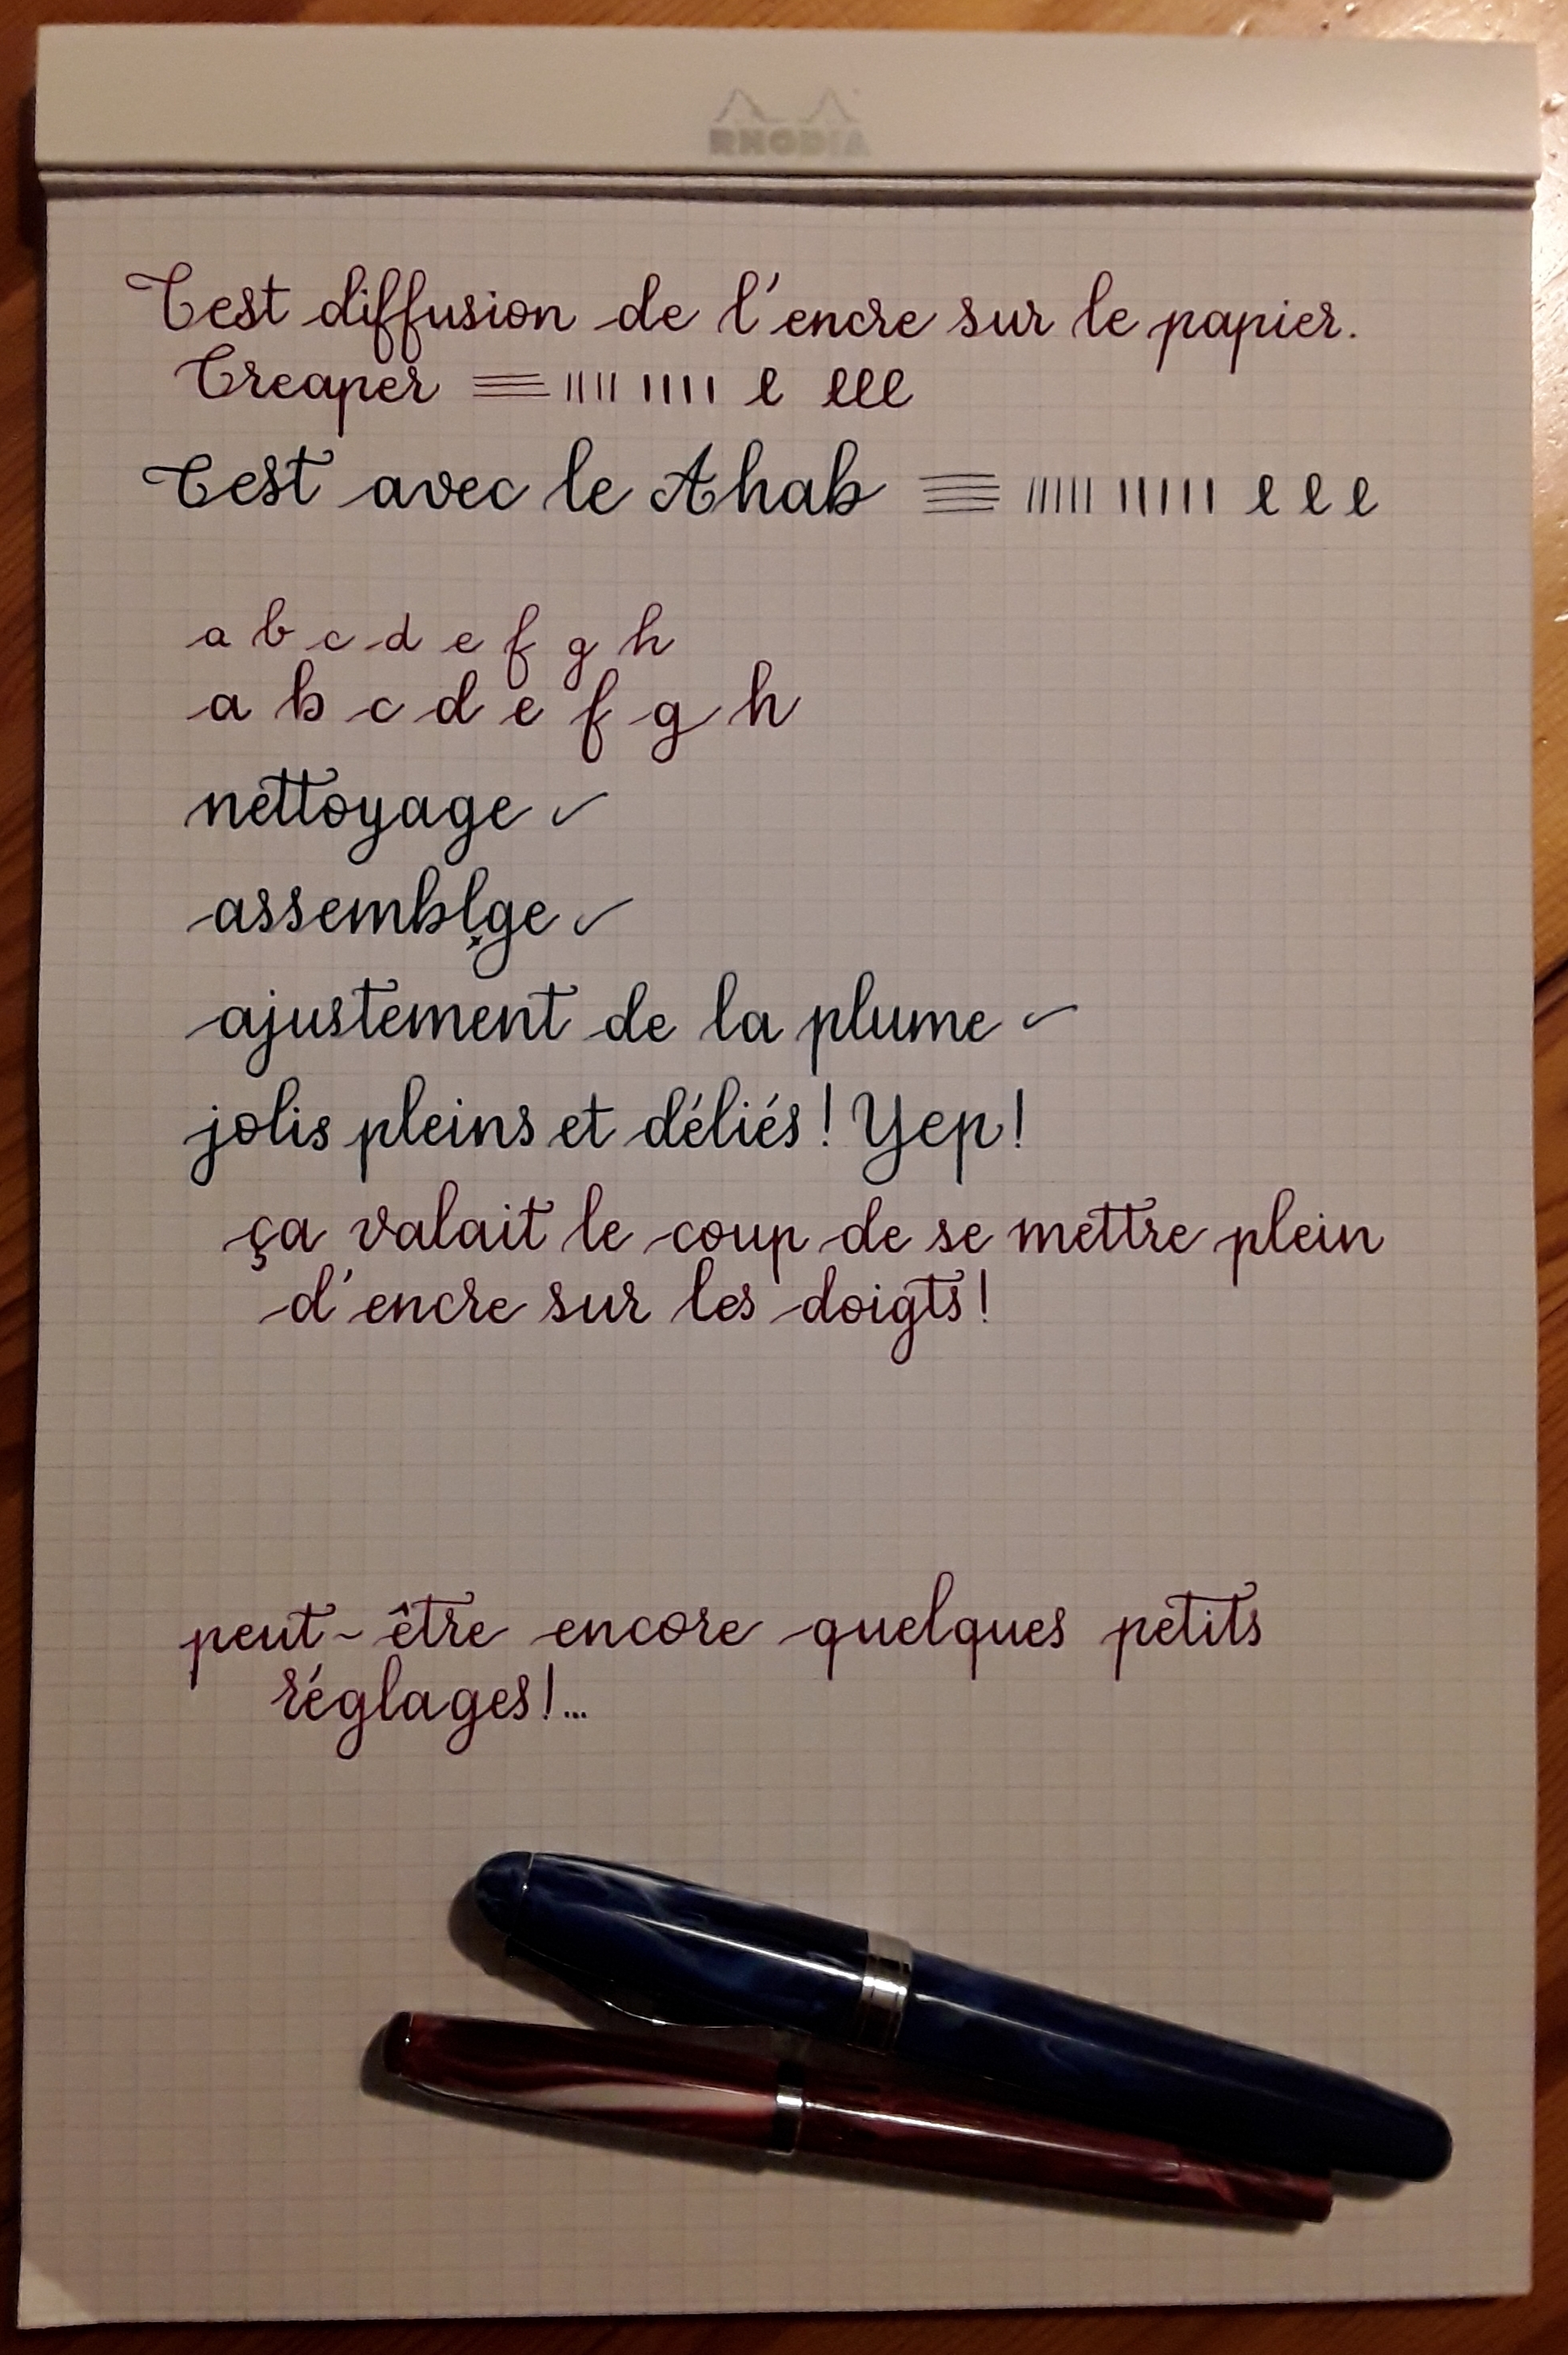 RHODIA
Test diffusion de l'encre sur le papier.
Creaper l lll
Test avec le Ahab l l l
a b c d e f g h
a b c d e f g h
nettoyage ✓
assemblge ✓
ajustement de la plume ✓
jolis pleins et déliés ! Yep !
ça valait le coup de se mettre plein
d'encre sur les doigts !
peut-être encore quelques petits
réglages !...